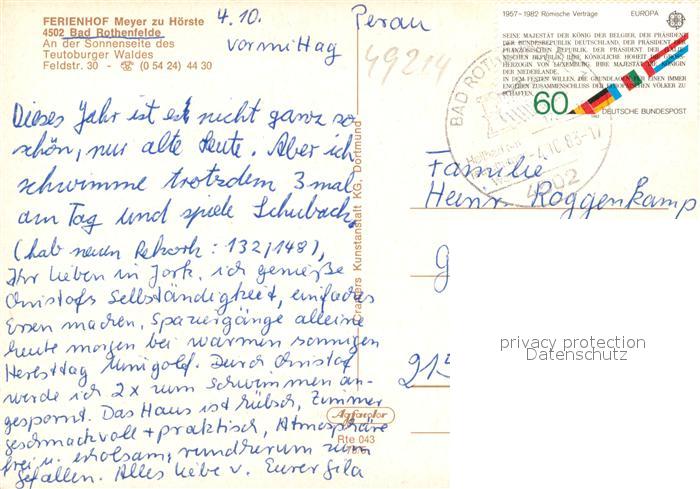 FERIENHOF Meyer zu Hörste
4502 Bad Rothenfelde
An der Sonnenseite des
Teutoburger Waldes
Feldstr. 30 - ☎ (0 54 24) 44 30
4.10.
vormittag
49214
Dieses Jahr ist es nicht ganz so
schön, nur alte Leute. Aber ich
schwimme trotzdem 3 mal
am Tag und spiele Schubach,
(hab neuen Rekork: 132/148),
Ihr Lieben in Jork, ich genieße
Christofs Selbständigkeit, einfaches
Essen machen, Spaziergänge alleine
heute morgen bei warmen sonnigen
Herbsttag Minigolf. Durch Christof
werde ich 2x zum Schwimmen an-
gespornt. Das Haus ist hübsch, Zimmer
geschmackvoll + praktisch, Atmosphäre
frei u. erholsam, rundherum zum
Gefallen. Alles Liebe v. Eurer Gila
Cramers Kunstanstalt KG, Dortmund
Agfacolor
Rte 043
1957–1982 Römische Verträge EUROPA
SEINE MAJESTÄT DER KÖNIG DER BELGIER, DER PRÄSIDENT
DER BUNDESREPUBLIK DEUTSCHLAND, DER PRÄSIDENT DER
FRANZÖSISCHEN REPUBLIK, DER PRÄSIDENT DER ITALIE-
NISCHEN REPUBLIK, IHRE KÖNIGLICHE HOHEIT DIE GROSS-
HERZOGIN VON LUXEMBURG, IHRE MAJESTÄT DIE KÖNIGIN
DER NIEDERLANDE.
IN DEM FESTEN WILLEN, DIE GRUNDLAGEN FÜR EINEN IMMER
ENGEREN ZUSAMMENSCHLUSS DER EUROPÄISCHEN VÖLKER ZU
SCHAFFEN
60 DEUTSCHE BUNDESPOST
BAD ROTH
-4.10.83-17
4502
Familie
Heinr. Roggenkamp
G
215
privacy protection
Datenschutz